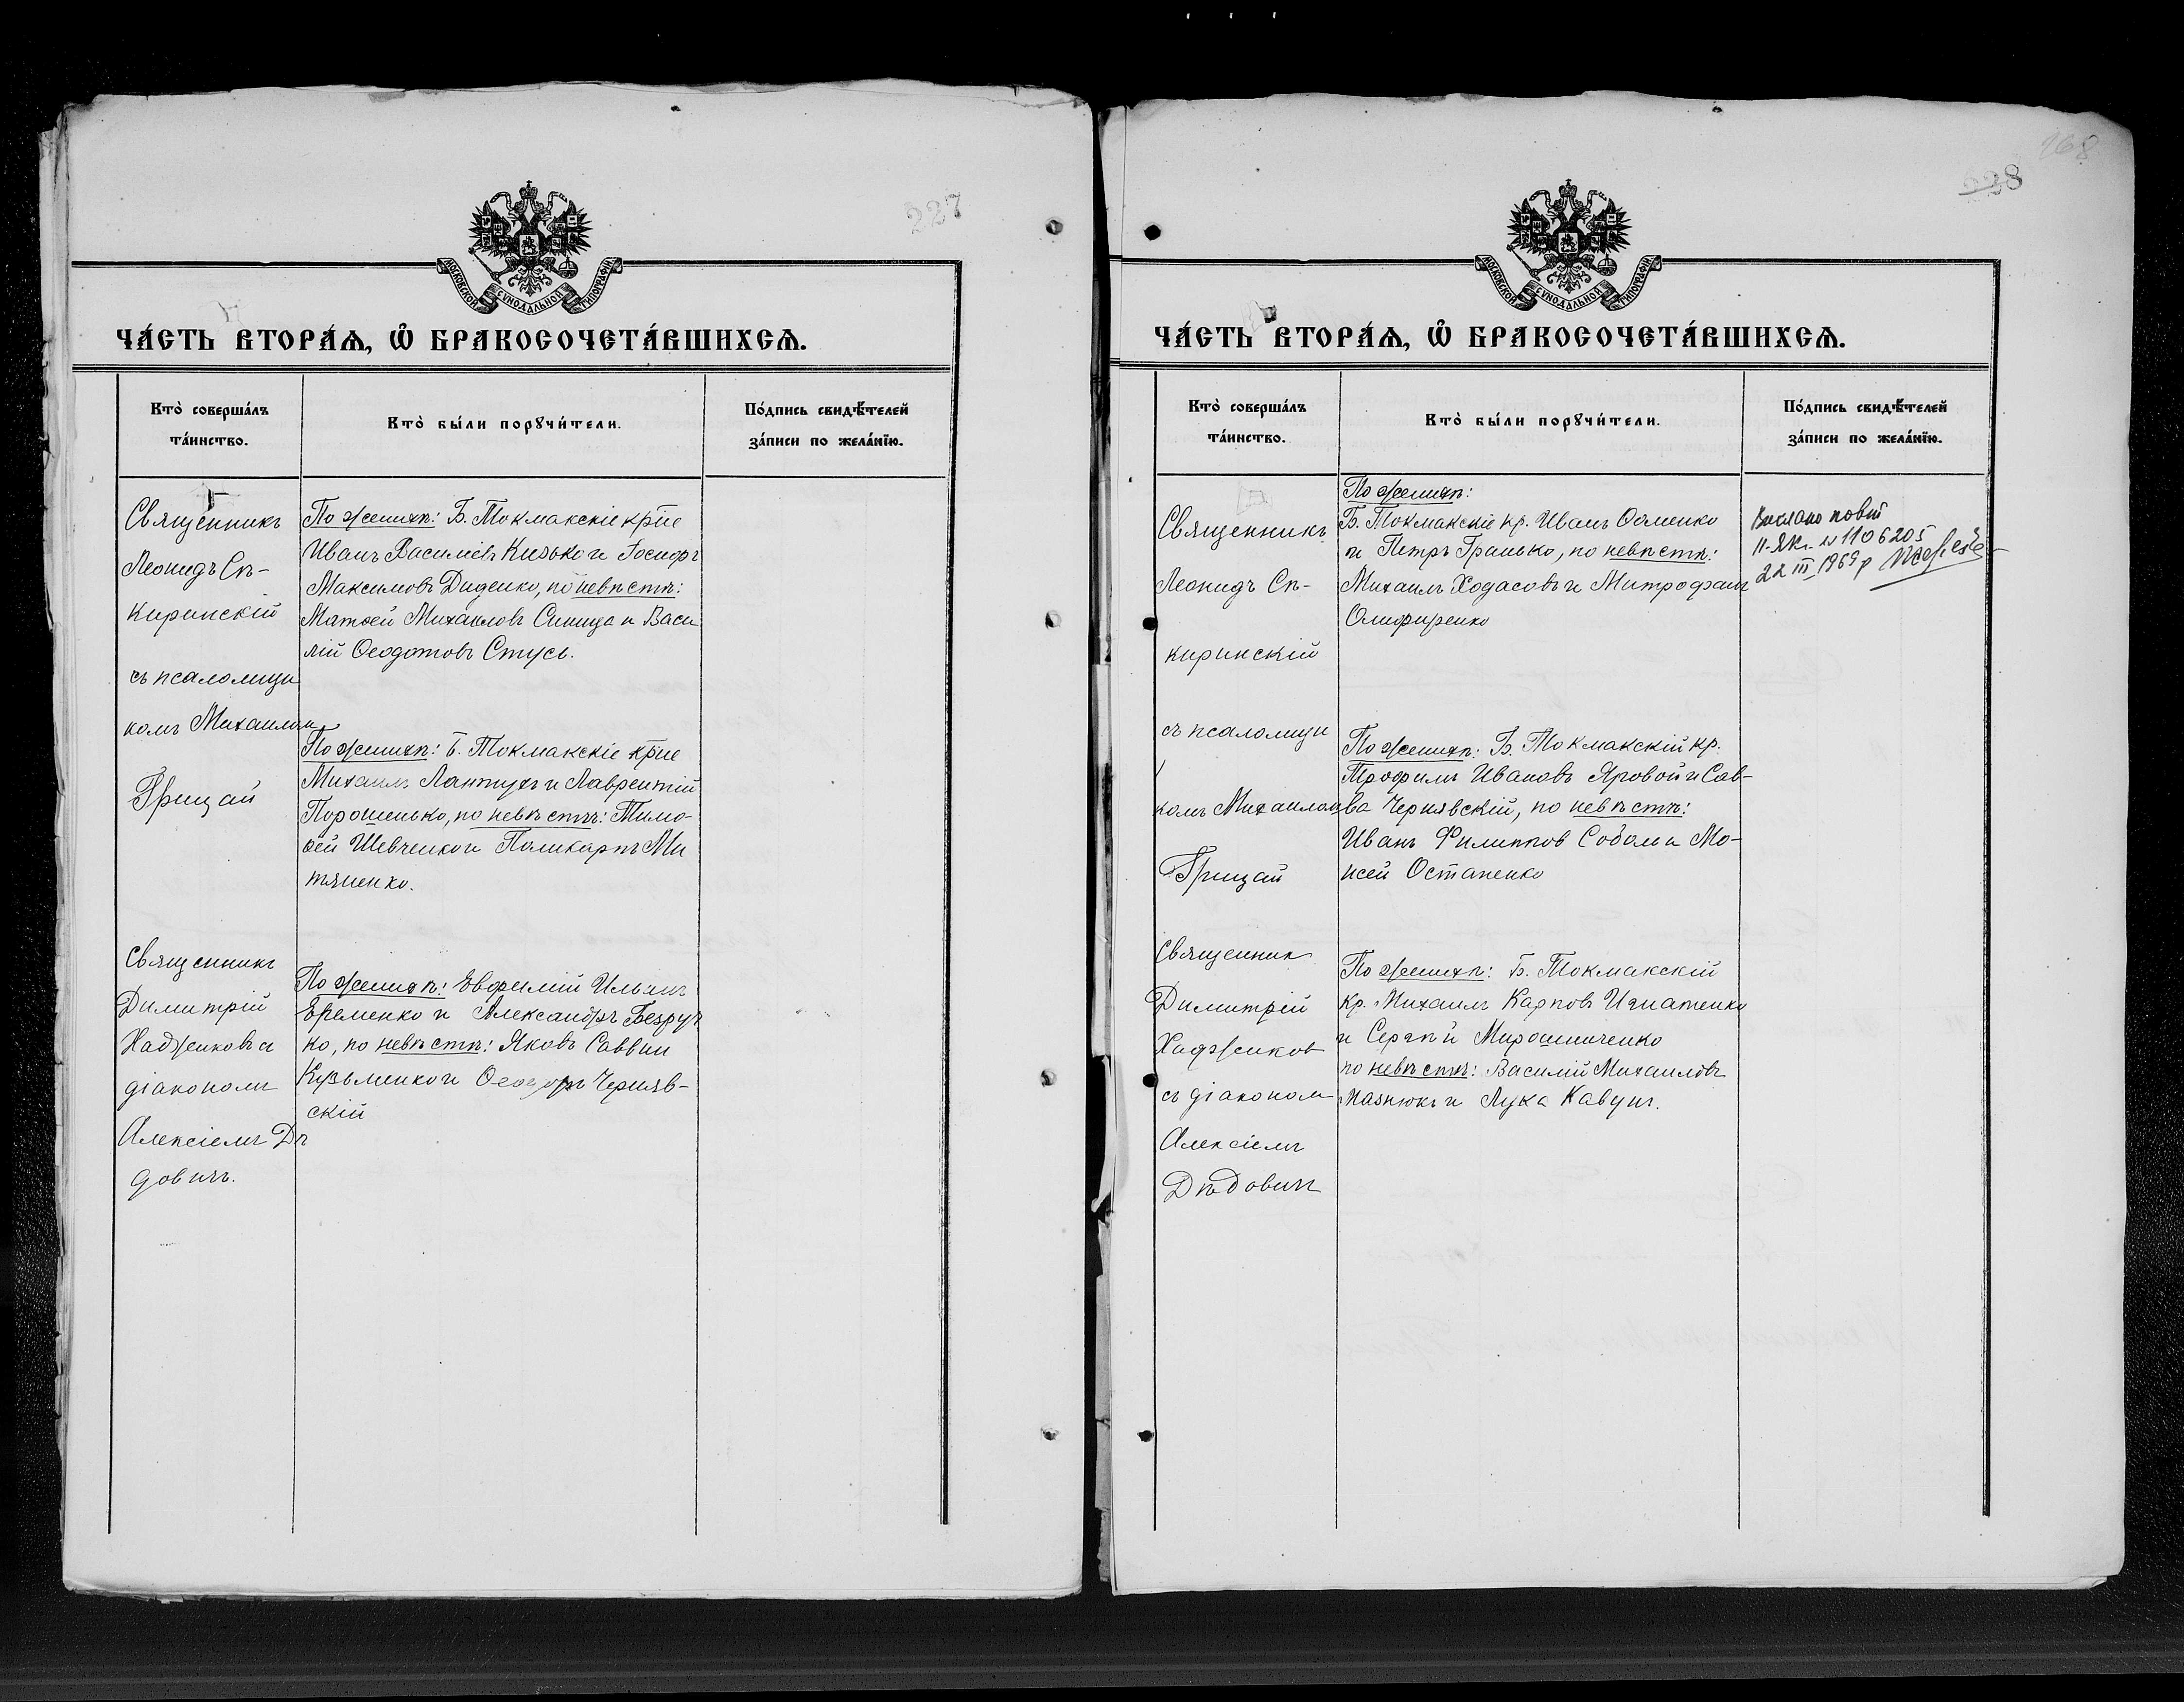 227
МОСКОВСКОЙ СѴНОДАЛЬНОЙ ТИПОГРАФІИ
ЧА́СТЬ ВТОРА́Ѧ, Ѽ БРАКОСОЧЕТА́ВШИХСѦ.
Кто̀ соверша́лъ
та́инство.
Кто̀ бы́ли порꙋчи́тели.
По́дпись свидѣ́телей
за́писи по жела́нїю.
Священникъ
Леонидъ Сѣ-
киринскій
съ псаломщи
комъ Михаилом
Грицай
По женихѣ: Б. Токмакскіе кр͞не
Иванъ Василіев Кизько и Іосифъ
Максимовъ Диденко, по невѣстѣ:
Матѳей Михаиловъ Синица и Васи
лій Ѳеодотовъ Стусь.
По женихѣ: Б. Токмакскіе кр͞не
Михаилъ Лантухъ и Лаврентій
Порошенько, по невѣстѣ: Тимо-
ѳей Шевченко и Поликарпъ Ми
тяненко.
Священникъ
Димитрій
Хаджиковъ с
діакономъ
Алексіемъ Дѣ
довичъ.
По женихѣ: Евфимій Ильинъ
Еременко и Александръ Безруч
ко, по невѣстѣ: Яковъ Саввин
Кузьменко и Ѳеодоръ Черняв-
скій
268
228
МОСКОВСКОЙ СѴНОДАЛЬНОЙ ТИПОГРАФІИ
ЧА́СТЬ ВТОРА́Ѧ, Ѽ БРАКОСОЧЕТА́ВШИХСѦ.
Кто̀ соверша́лъ
та́инство.
Кто̀ бы́ли порꙋчи́тели.
По́дпись свидѣ́телей
за́писи по жела́нїю.
Священникъ
Леонидъ Сѣ-
киринскій
съ псаломщи
комъ Михаилом
Грицай
По женихѣ:
Б. Токмакскіе кр. Иванъ Ѳоменко
и Петръ Гранько, по невѣстѣ:
Михаилъ Ходасовъ и Митрофанъ
Олифиренко
повт
II-ЯК. № 1106205
22 III 1969 р
По женихѣ: Б. Токмакскій кр.
Трофимъ Ивановъ Яровой и Сав-
ва Чернявскій, по невѣстѣ:
Иванъ Филиппов Соболь и Мо-
исей Остапенко
Священник
Димитрій
Хаджиков
съ діаконом
Алексіемъ
Дѣдовичъ
По женихѣ: Б. Токмакскій
кр. Михаилъ Карповъ Игнатенко
и Сергѣй Мирошниченко
по невѣстѣ: Василій Михаиловъ
Мазнюкъ и Лука Кавунъ.